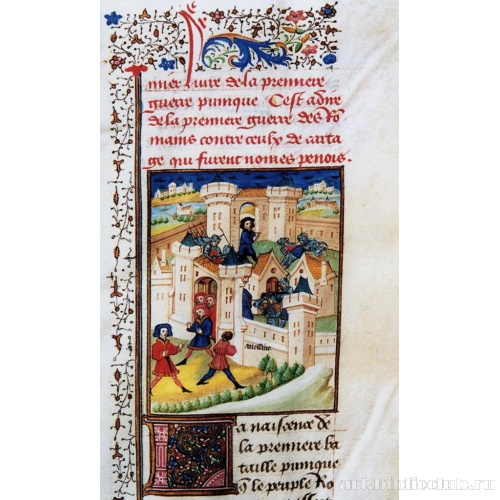 Le
mier liure de la premiere
guerre punique Cest adire
de la premiere guerre des Ro
mains contre ceulx de carta
ge qui furent nomes penois.
messine
La naiscence de
la premiere ba
taille punique
q̄ le peuple Ro
art.biblioclub.ru